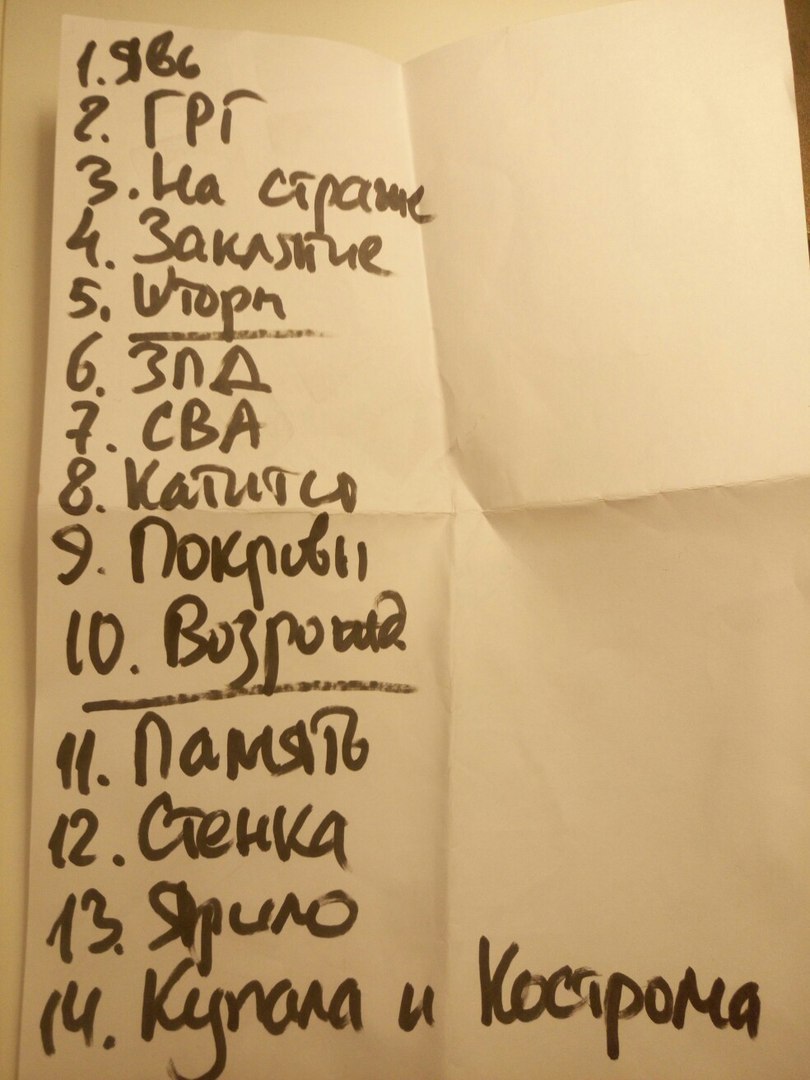 1. Явь
2. ГРГ
3. На страже
4. Заклятие
5. Шторм
6. ЗПД
7. СВА
8. Катится
9.
10.
11. Память
12. Стенка
13. Ярило
14. Купала и Кострома